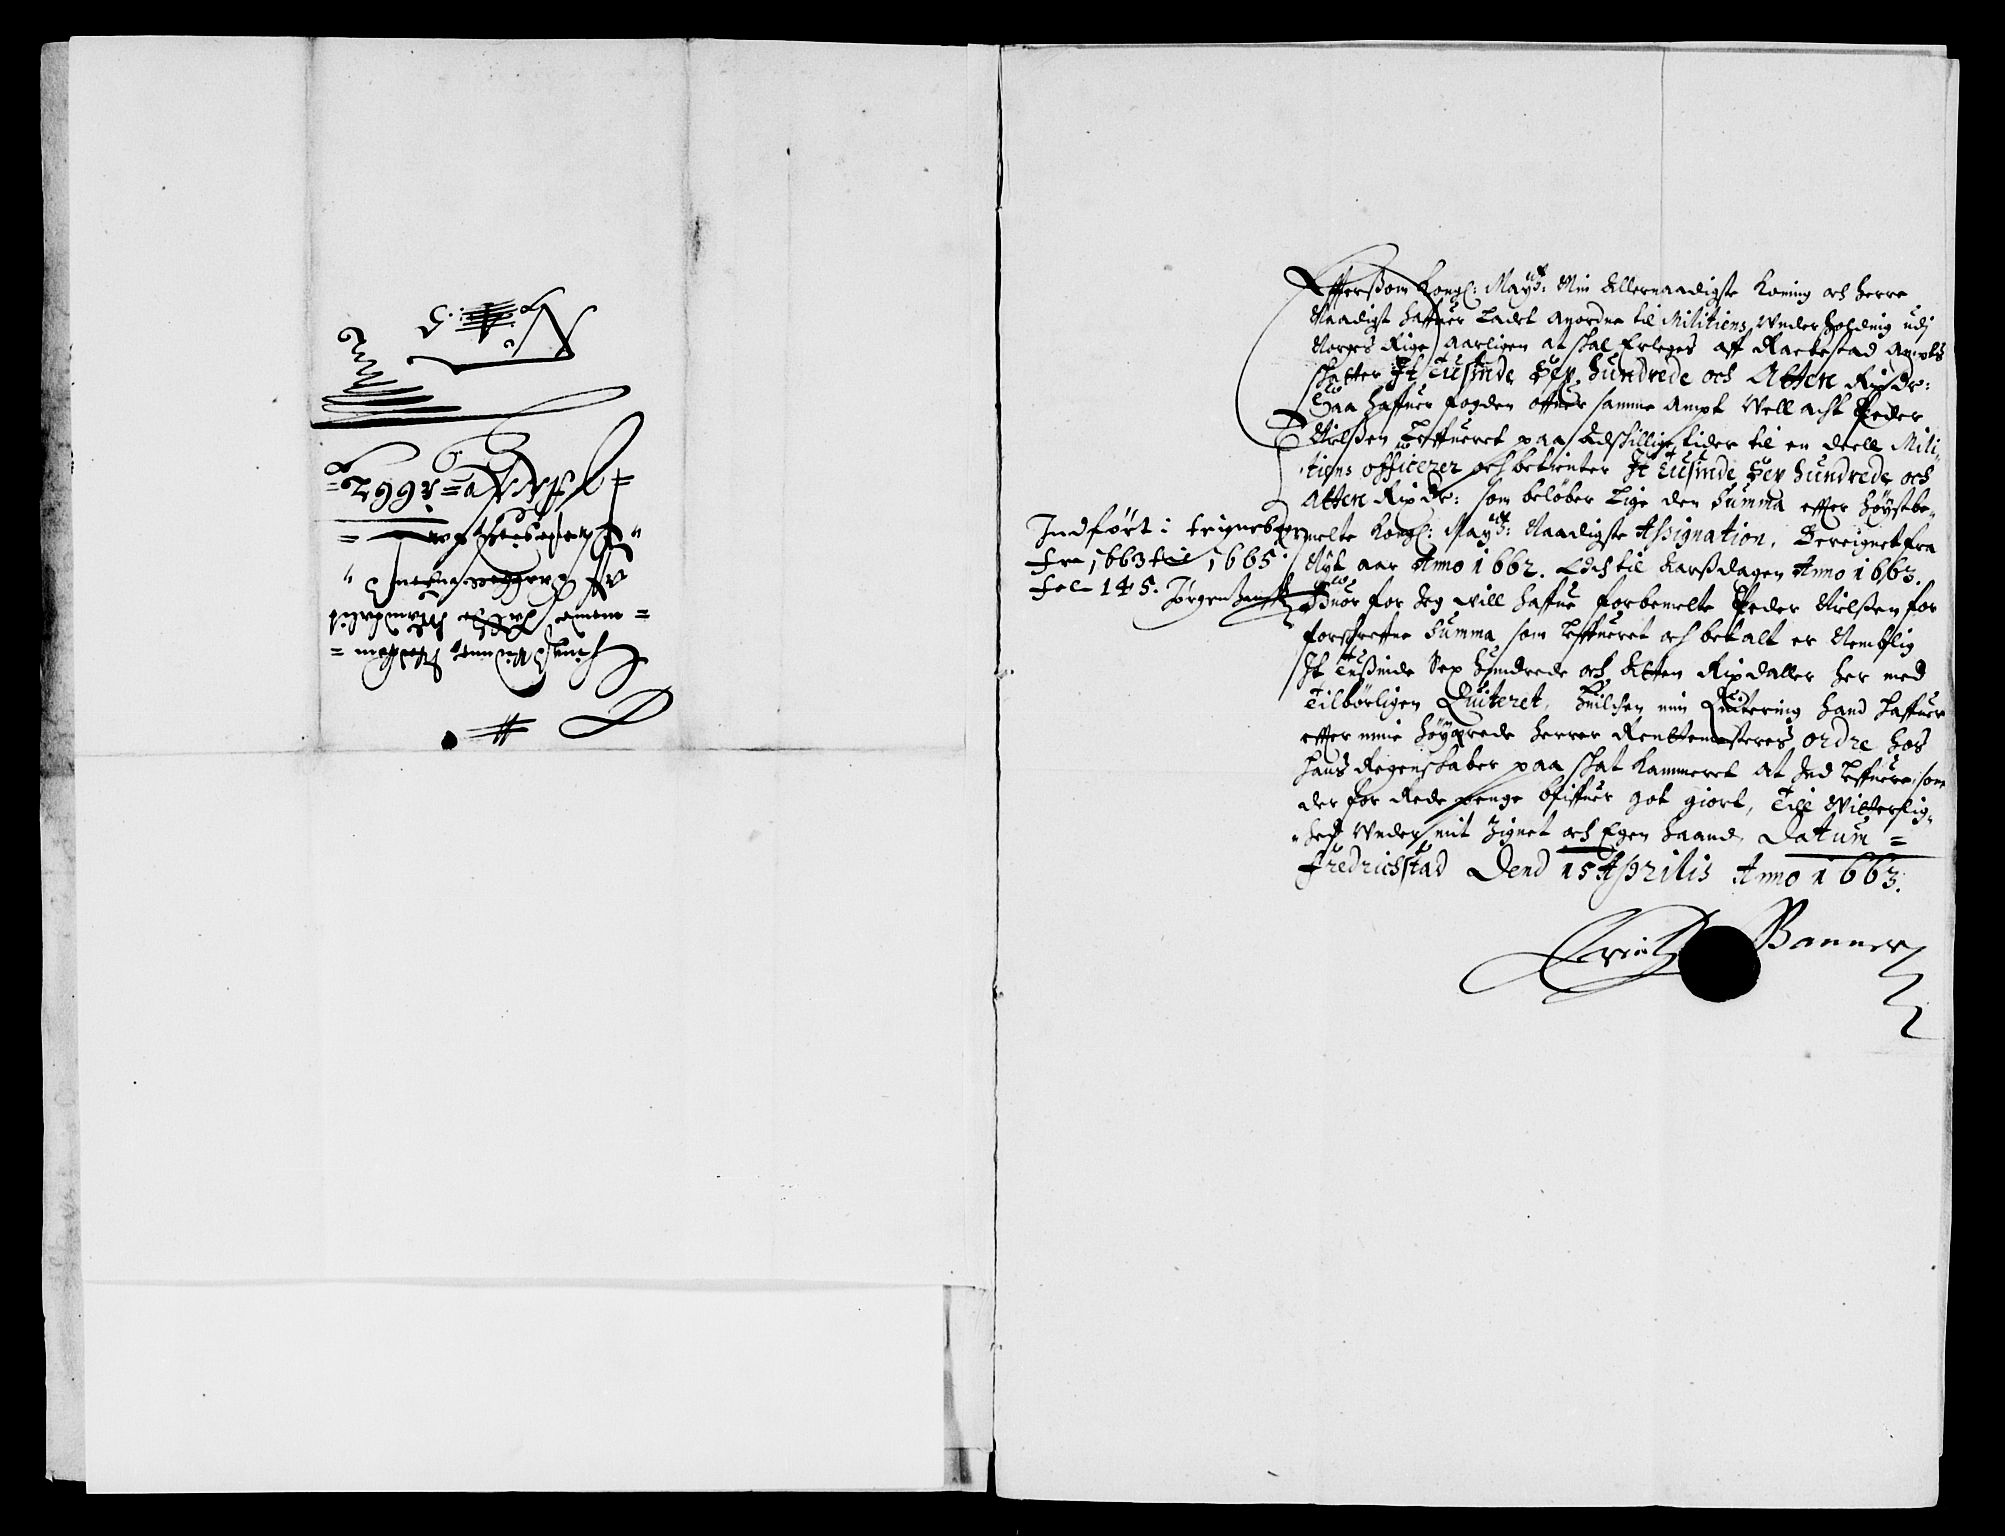 Effterßom Kongl: Mayts: Min Allernaadigste Koning och Herre
Naadigst haffuer Ladet Anordne til Militiens Underholdnig udj
Norges Rige, Aarligen at skal Erleges aff Rackestad Ampts
skatter It Tusinde Sex Hundrede och Atten Rixdr:
Saa haffuer Fogden offuer samme Ampt Well acht Peder
Nielßen Leffueret paa Adskillige tider til en deell Mili
tiens officerer och betienter It Tusinde Sex hundrede och
Atten Rixdr: som beløber Lige den Summa effter Høystbe-
melte Kongl: Mayts: Naadigste Assignation. Bereignet fra
Nyt aar Anno 1662. Och til Aarßdagen Anno 1663.
Huor for Jeg will haffue forbemelte Peder Nielßen for
forschreffne Summa som Leffueret och betalt er Nemblig
It Tußinde Sex Hundrede och Atten Rixdaller her med
Tilbørligen Quiteret, Huilchen min Quitering Hand haffuer
effter mine Høyærede Herrer Rentemesteres ordre hos
hans Regenskaber paa skat Kammeret at Ind Leffuere, som
der for Rede penge bliffuer got giort, Till Witterlig-
-hed Under mit Zignet och Egen Haand, Datum =
Fredrichstad Dend 15 Aprilis Anno 1663.
Erich Banner
Indført i
fra 1663 til 1665.
fol 145. Jørgen Hanß
No: 5.
Anno = 1662